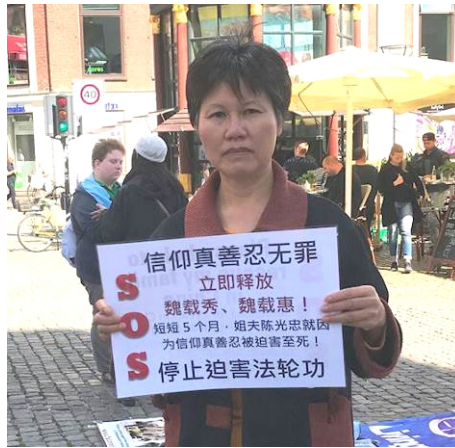 信仰真善忍无罪
立即释放
魏载秀、魏载惠！
短短5个月，姐夫陈光忠就因
为信仰真善忍被迫害至死！
停止迫害法轮功
SOS
40